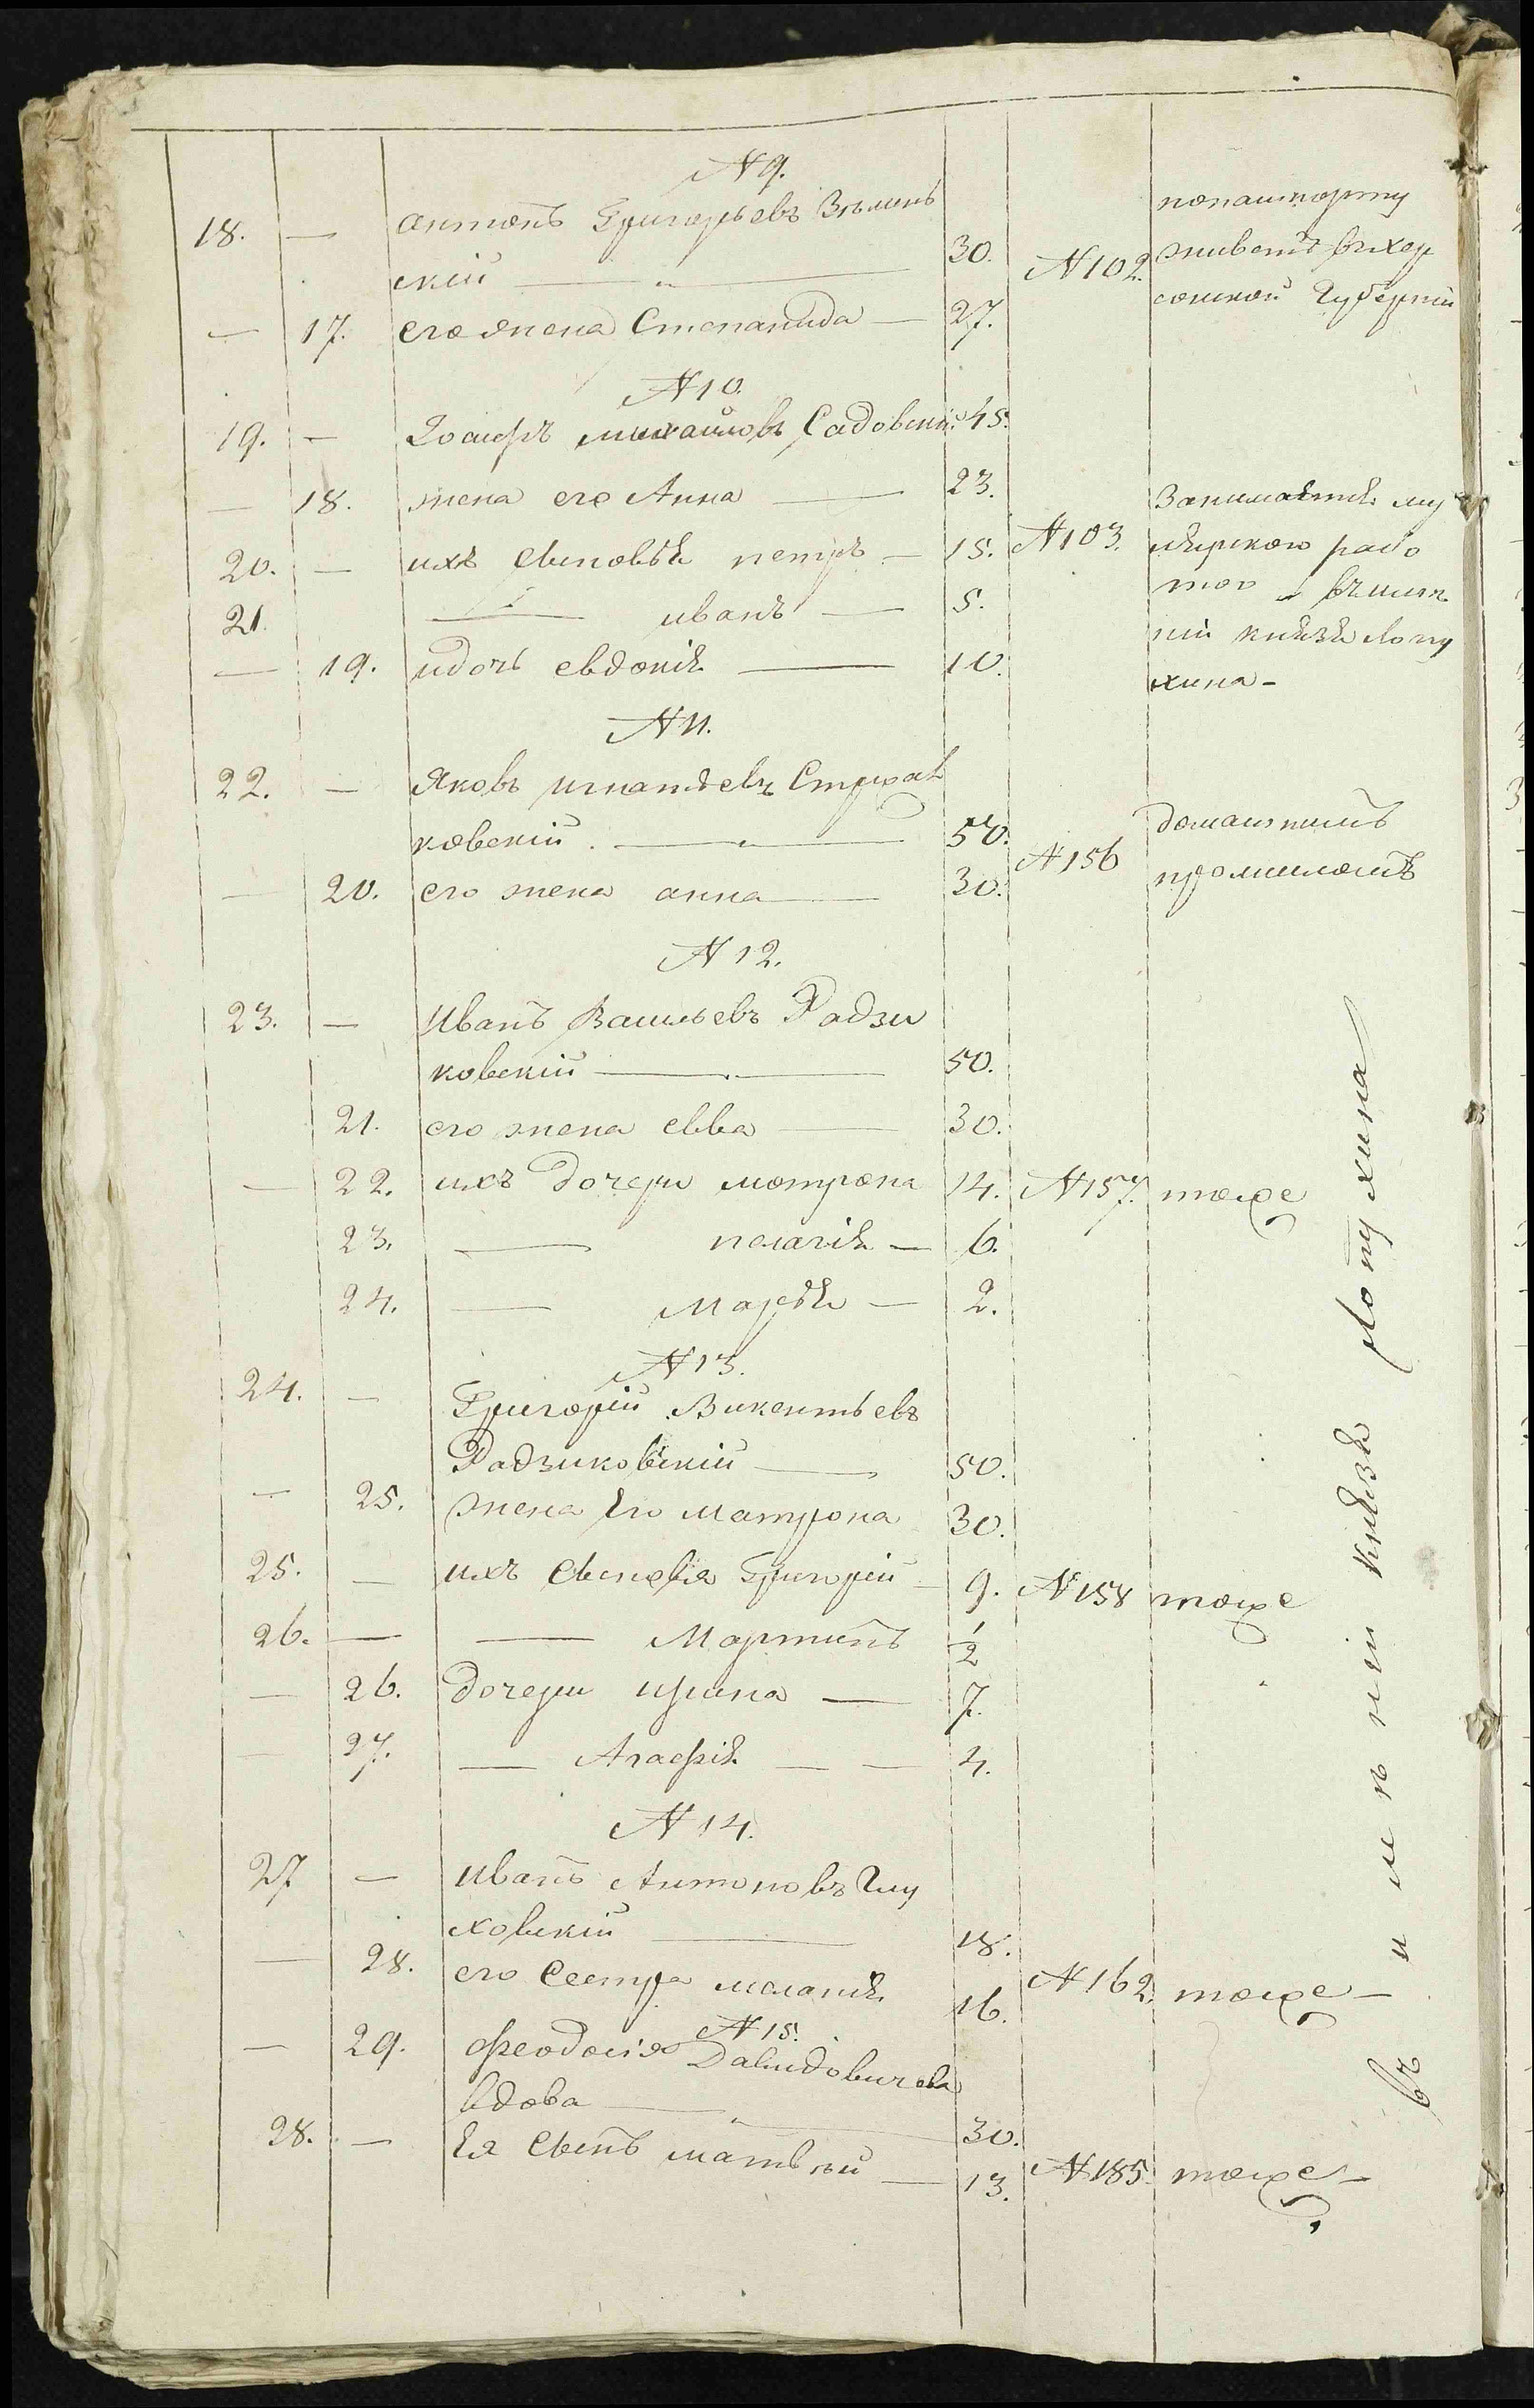 N 9.
18. — Антонъ Григорьевъ Зѣлин
скій — 30. N 102. попашпорту
живетъ вхер
сонской Губерніи
— 17. его жена Степанида — 27.
N 10.
19. — Іосифъ михайловъ Садовскій 45.
— 18. жена его Анна — 23.
20. — ихъ сыновья петръ — 15. N 103. Занимается му
лярскою рабо
тою въимѣ
ніи князя Лопу
хина —
21. — иванъ — 5.
— 19. идочь евдокія — 10.
N 11.
22. — Яковъ игнатьевъ
ковскій. — 50. N 156 домашнимъ
промисломъ
— 20. его жена анна — 30.
N 12.
23. — Иванъ Васильевъ Радзи
ковскій — 50.
21. его жена евва — 30.
— 22. ихъ дочери мотрона 14. N 157. тоже
23. — пелагія — 6.
24. — Марья — 2.
N 13.
24. — Григорій Викентьевъ
Радзиковскій — 50.
— 25. жена его матрона 30.
25. — ихъ сыновья Григорій — 9. N 158 тоже
26. — — Мартинъ 1/2
— 26. дочери ирина — 7.
— 27. — Агафія — — 4.
N 14.
27 — иванъ Антоновъ Глу
ховскій — 18.
— 28. его Сестра меланія 16. N 162. тоже —
N 15.
— 29. феодосія Давидовичова
вдова — 30.
28. — Ея Сынъ матвѣй — 13. N 185. тоже —
въ имѣніи князя Лопухина